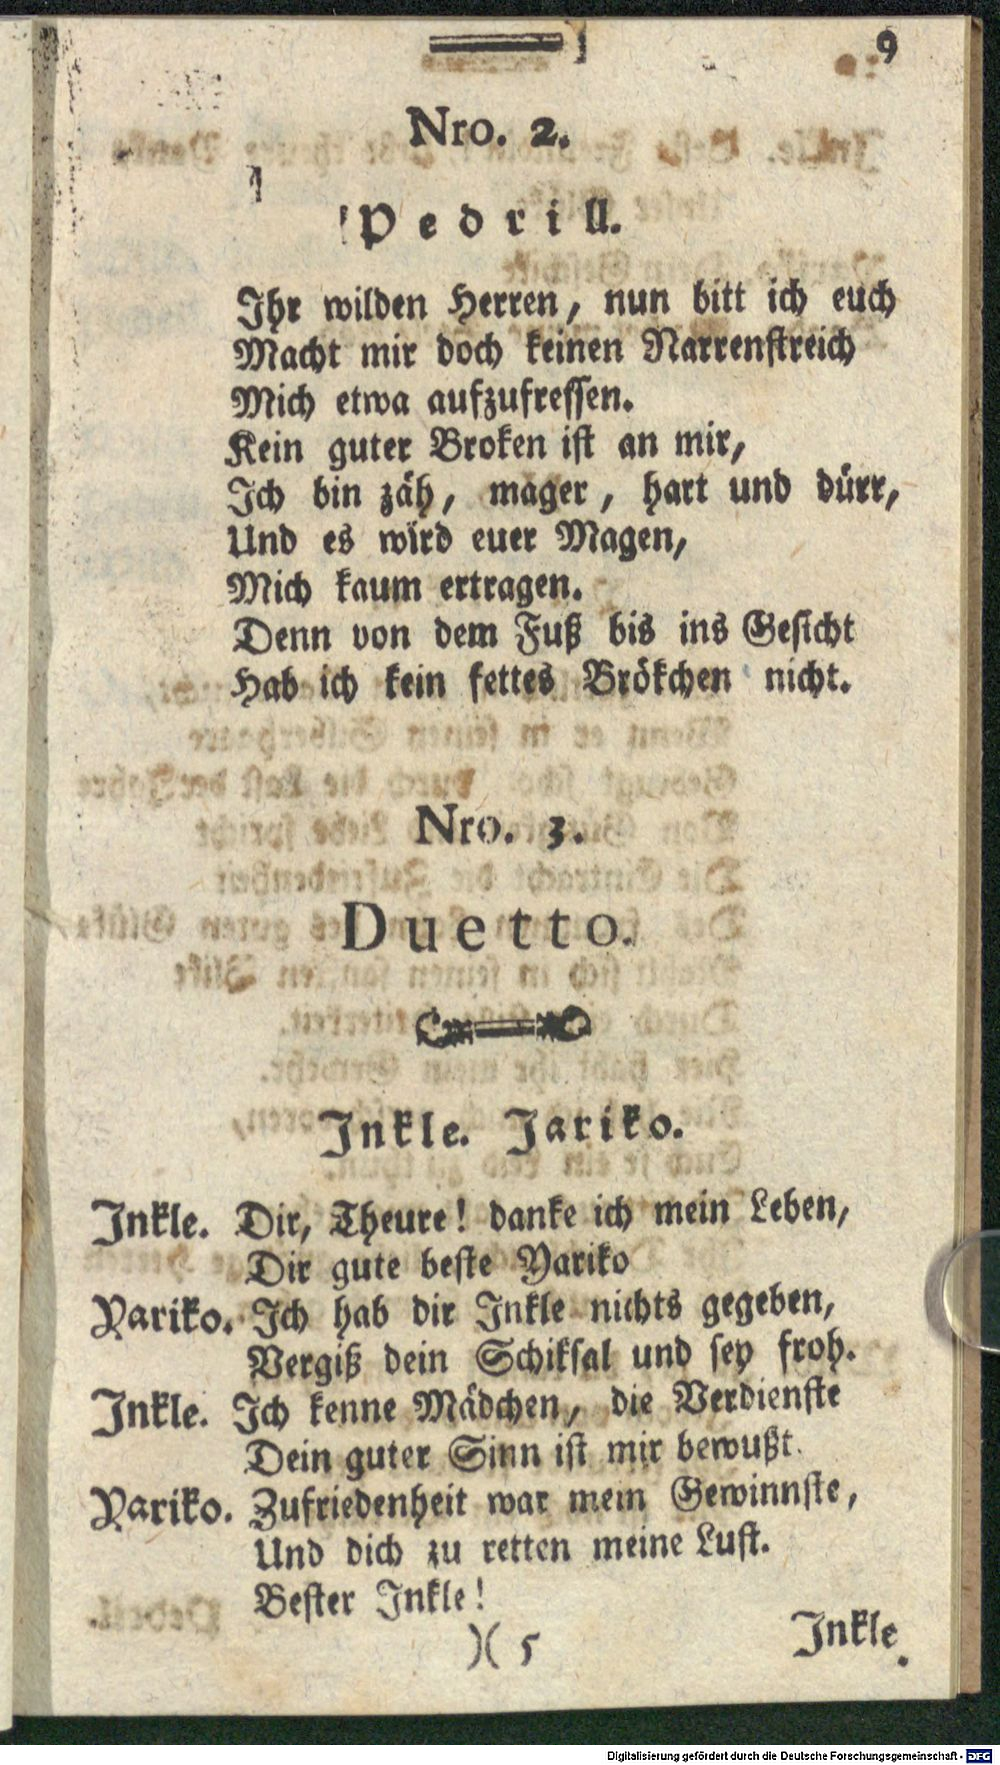 9
Nro. 2.
Pedrill.
Ihr wilden Herren, nun bitt ich euch
Macht mir doch keinen Narrenstreich
Mich etwa aufzufressen.
Kein guter Broken ist an mir,
Ich bin zäh, mager, hart und dürr,
Und es wird euer Magen,
Mich kaum ertragen.
Denn von dem Fuß bis ins Gesicht
Hab ich kein fettes Brökchen nicht.
Nro. 3.
Duetto.
Inkle. Jariko.
Inkle. Dir, Theure! danke ich mein Leben,
Dir gute beste Yariko
Yariko. Ich hab dir Inkle nichts gegeben,
Vergiß dein Schiksal und sey froh.
Inkle. Ich kenne Mädchen, die Verdienste
Dein guter Sinn ist mir bewußt.
Yariko. Zufriedenheit war mein Gewinnste,
Und dich zu retten meine Lust.
Bester Inkle!
)( 5 Inkle.
Digitalisierung gefördert durch die Deutsche Forschungsgemeinschaft - DFG